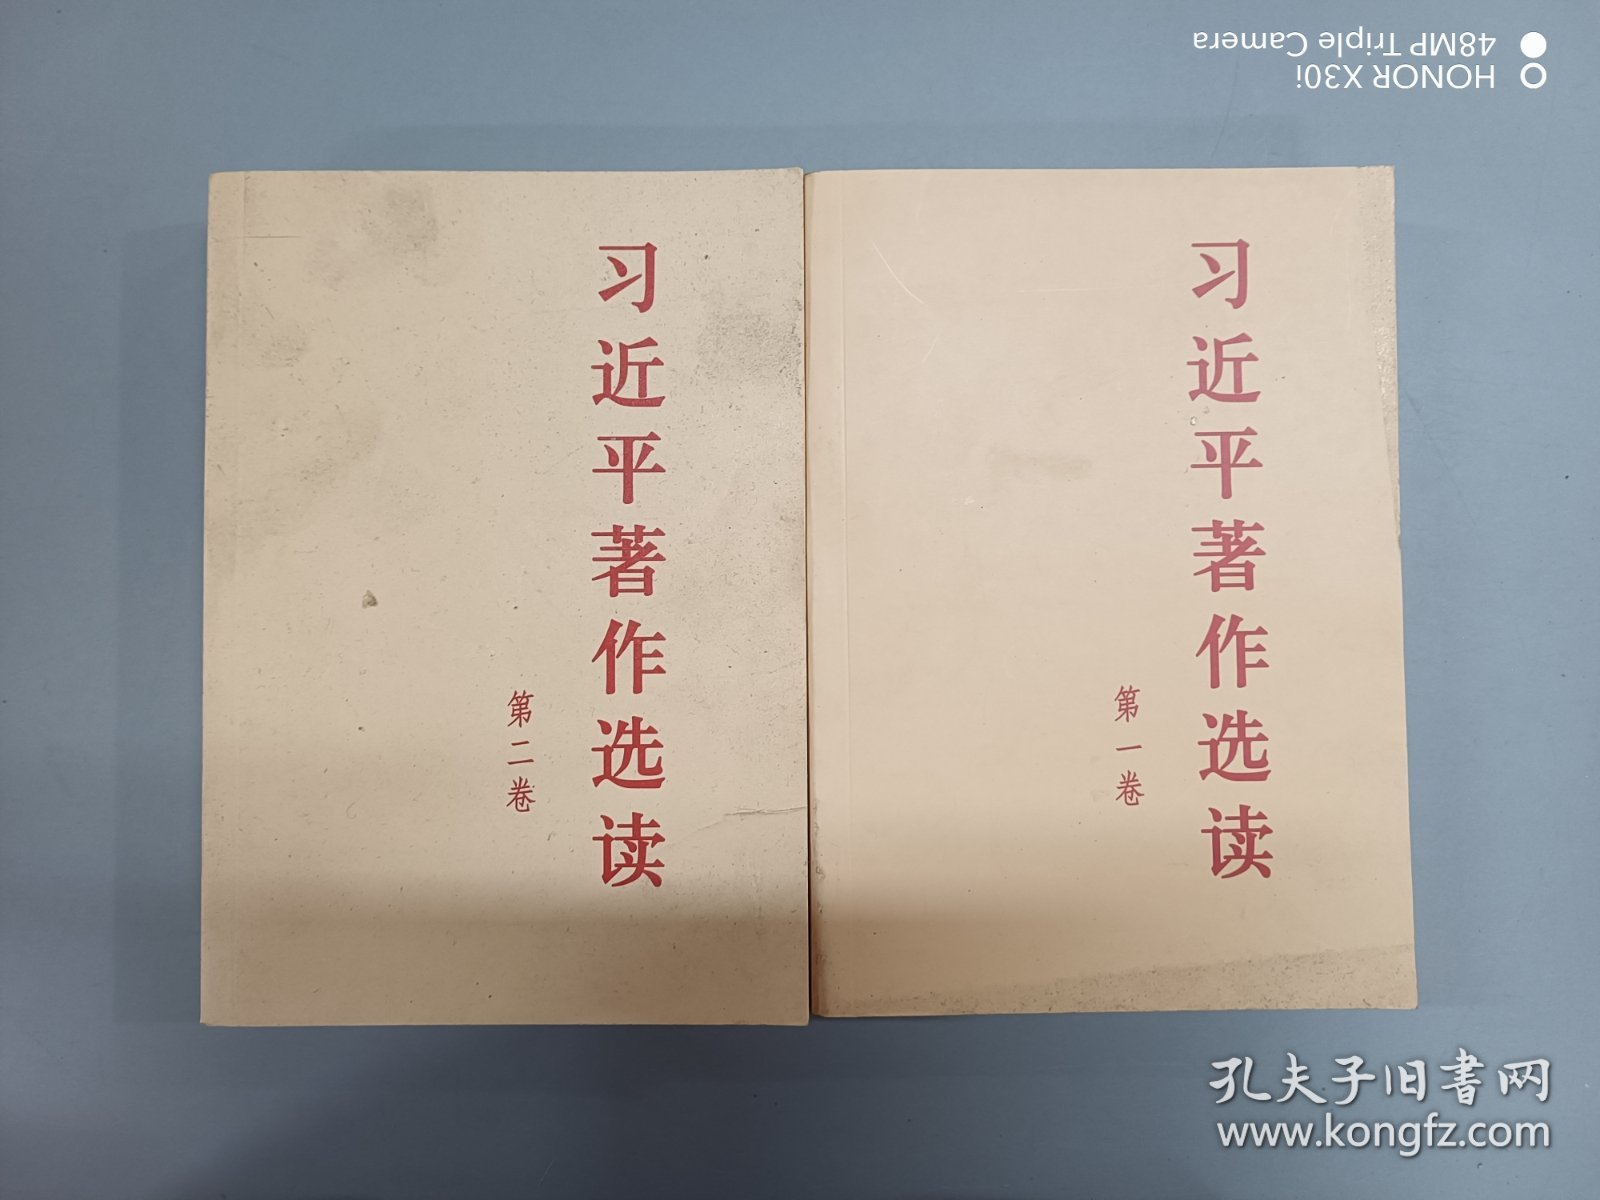 HONOR X30i
48MP Triple Camera
习近平著作选读
第二卷
习近平著作选读
第一卷
孔夫子旧书网
www.kongfz.com